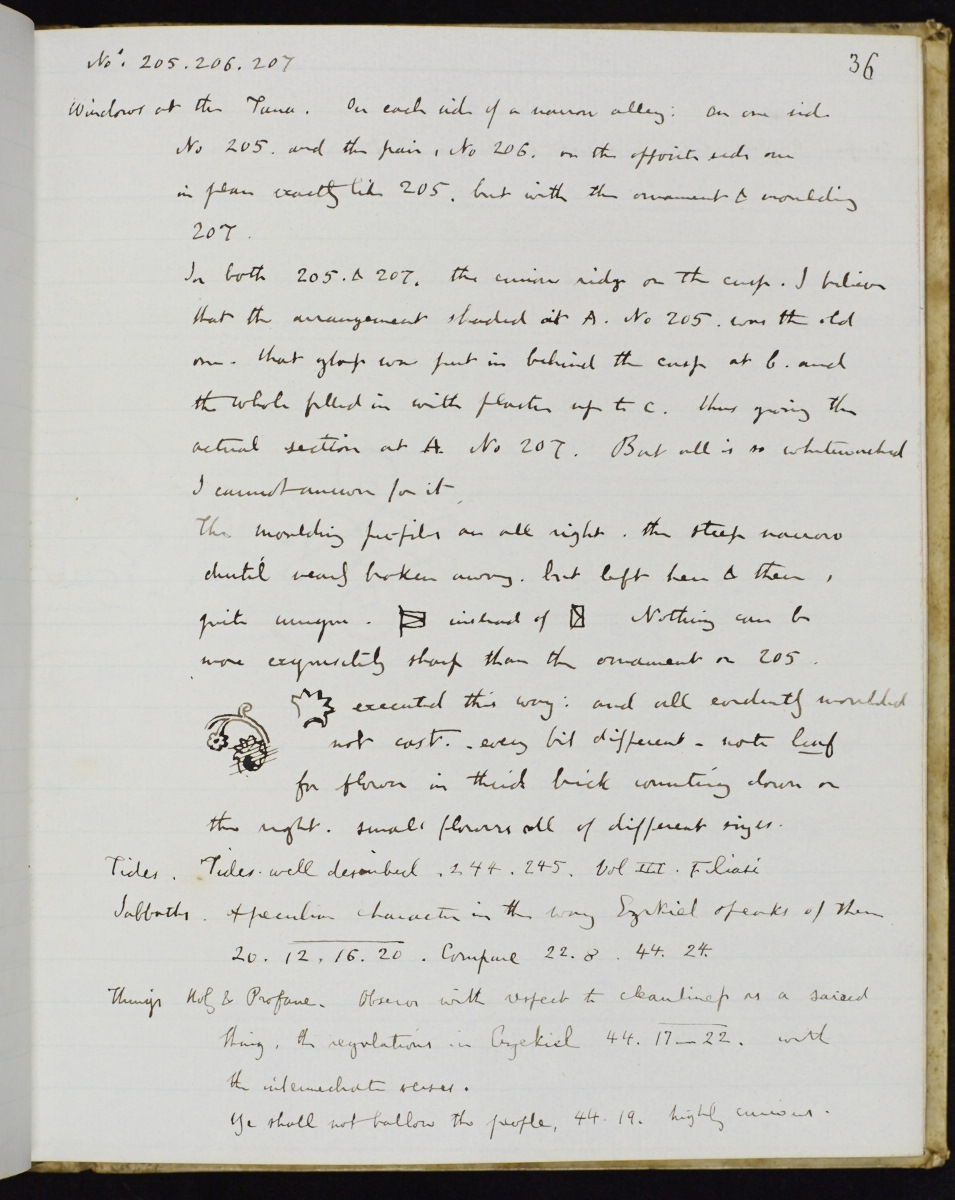 Nos. 205. 206. 207
36
Windows at the Tana. On each side of a narrow alley: on one side
No 205. and the pair, No 206. on the opposite side one
in plan exactly like 205. but with the ornament & moulding
207.
In both 205. & 207. the curious ridge on the cusp. I believe
that the arrangement shaded at A. No 205. was the old
one. that glass was put in behind the cusp at b. and
the whole filled in with plaster up to c. thus giving the
actual section at A. No 207. But all is so whitewashed
I cannot answer for it.
The moulding profiles are all right. the steep narrow
dentil nearly broken away. but left here & there,
quite unique. instead of Nothing can be
more exquisitely sharp than the ornament on 205.
executed this way: and all evidently moulded
not cast. - every bit different - note leaf
for flower in third brick counting down on
the right. small flowers all of different sizes.
Tides. Tides well described. 244. 245. Vol III. Filiasi
Sabbaths. A peculiar character in the way Ezekiel speaks of them
20. 12. 16. 20. Compare 22. 8. 44. 24.
Things Holy & Profane. Observe with respect to cleanliness as a sacred
thing, the regulations in Ezekiel 44. 17-22. with
the intermediate verses.
Ye shall not hallow the people, 44. 19. highly curious.